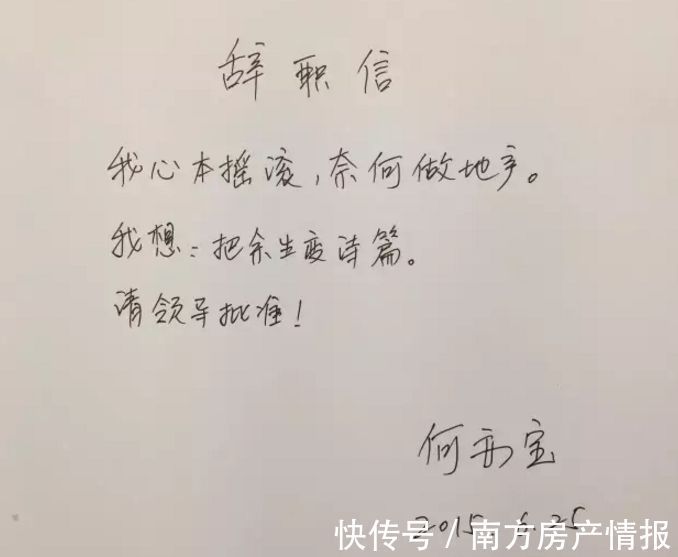 辞职信
我心本摇滚,奈何做地产。
我想:把余生变诗篇。
请领导批准!
何亦宝
2015 6.25
快传号/南方房产情报